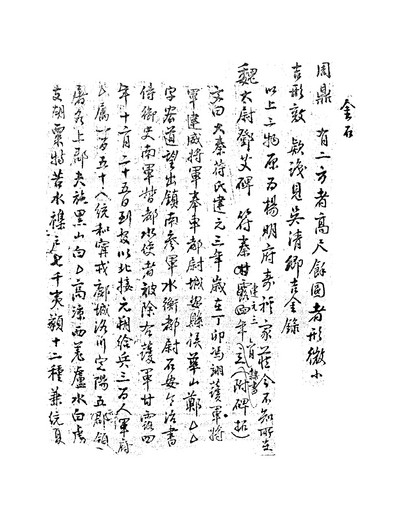 金石
周鼎 有二方者高尺餘圓者形微小
吉彤敦 款識見吳清卿吉金錄
以上三物原為楊明府彥家藏今不知所之
魏太尉鄧艾碑 苻秦建元三甘露四年立(附碑拓)
文曰大秦苻氏建元三年歲在丁卯馮翊護軍將
軍建威將軍奉車都尉城安縣侯華山鄭△△
字宏道望出鎮南參軍水衡都尉石安令治書
侍御史南軍督都水使者被除右護軍甘露四
年十二月二十五日到官以北接元朔給兵三百人軍府
吏屬一百五十人統和寧戎鄜城洛川定陽五郡領
屠各上郡夫施黑山白△高涼西羌盧水白虜
支胡粟特苦水襍戶七千夷類十二種兼統夏